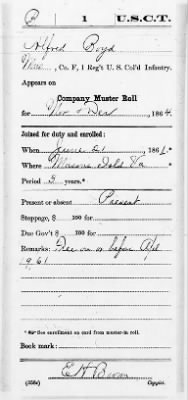 B | 1 | U.S.C.T.
Alfred Boyd
, Co. F, 1 Reg't U. S. Col'd Infantry.
Appears on
Company Muster Roll
for Nov & Dec , 1864.
Joined for duty and enrolled:
When June 21 , 186
Where Masons Isld Va
Period 3 years.*
Present or absent Present
Stoppage, $ 100 for
Due Gov't $ 100 for
Remarks: Free on or before Apl
19, 61
* See enrollment on card from muster-in roll.
Book mark:
E H
(358c) Copyist.